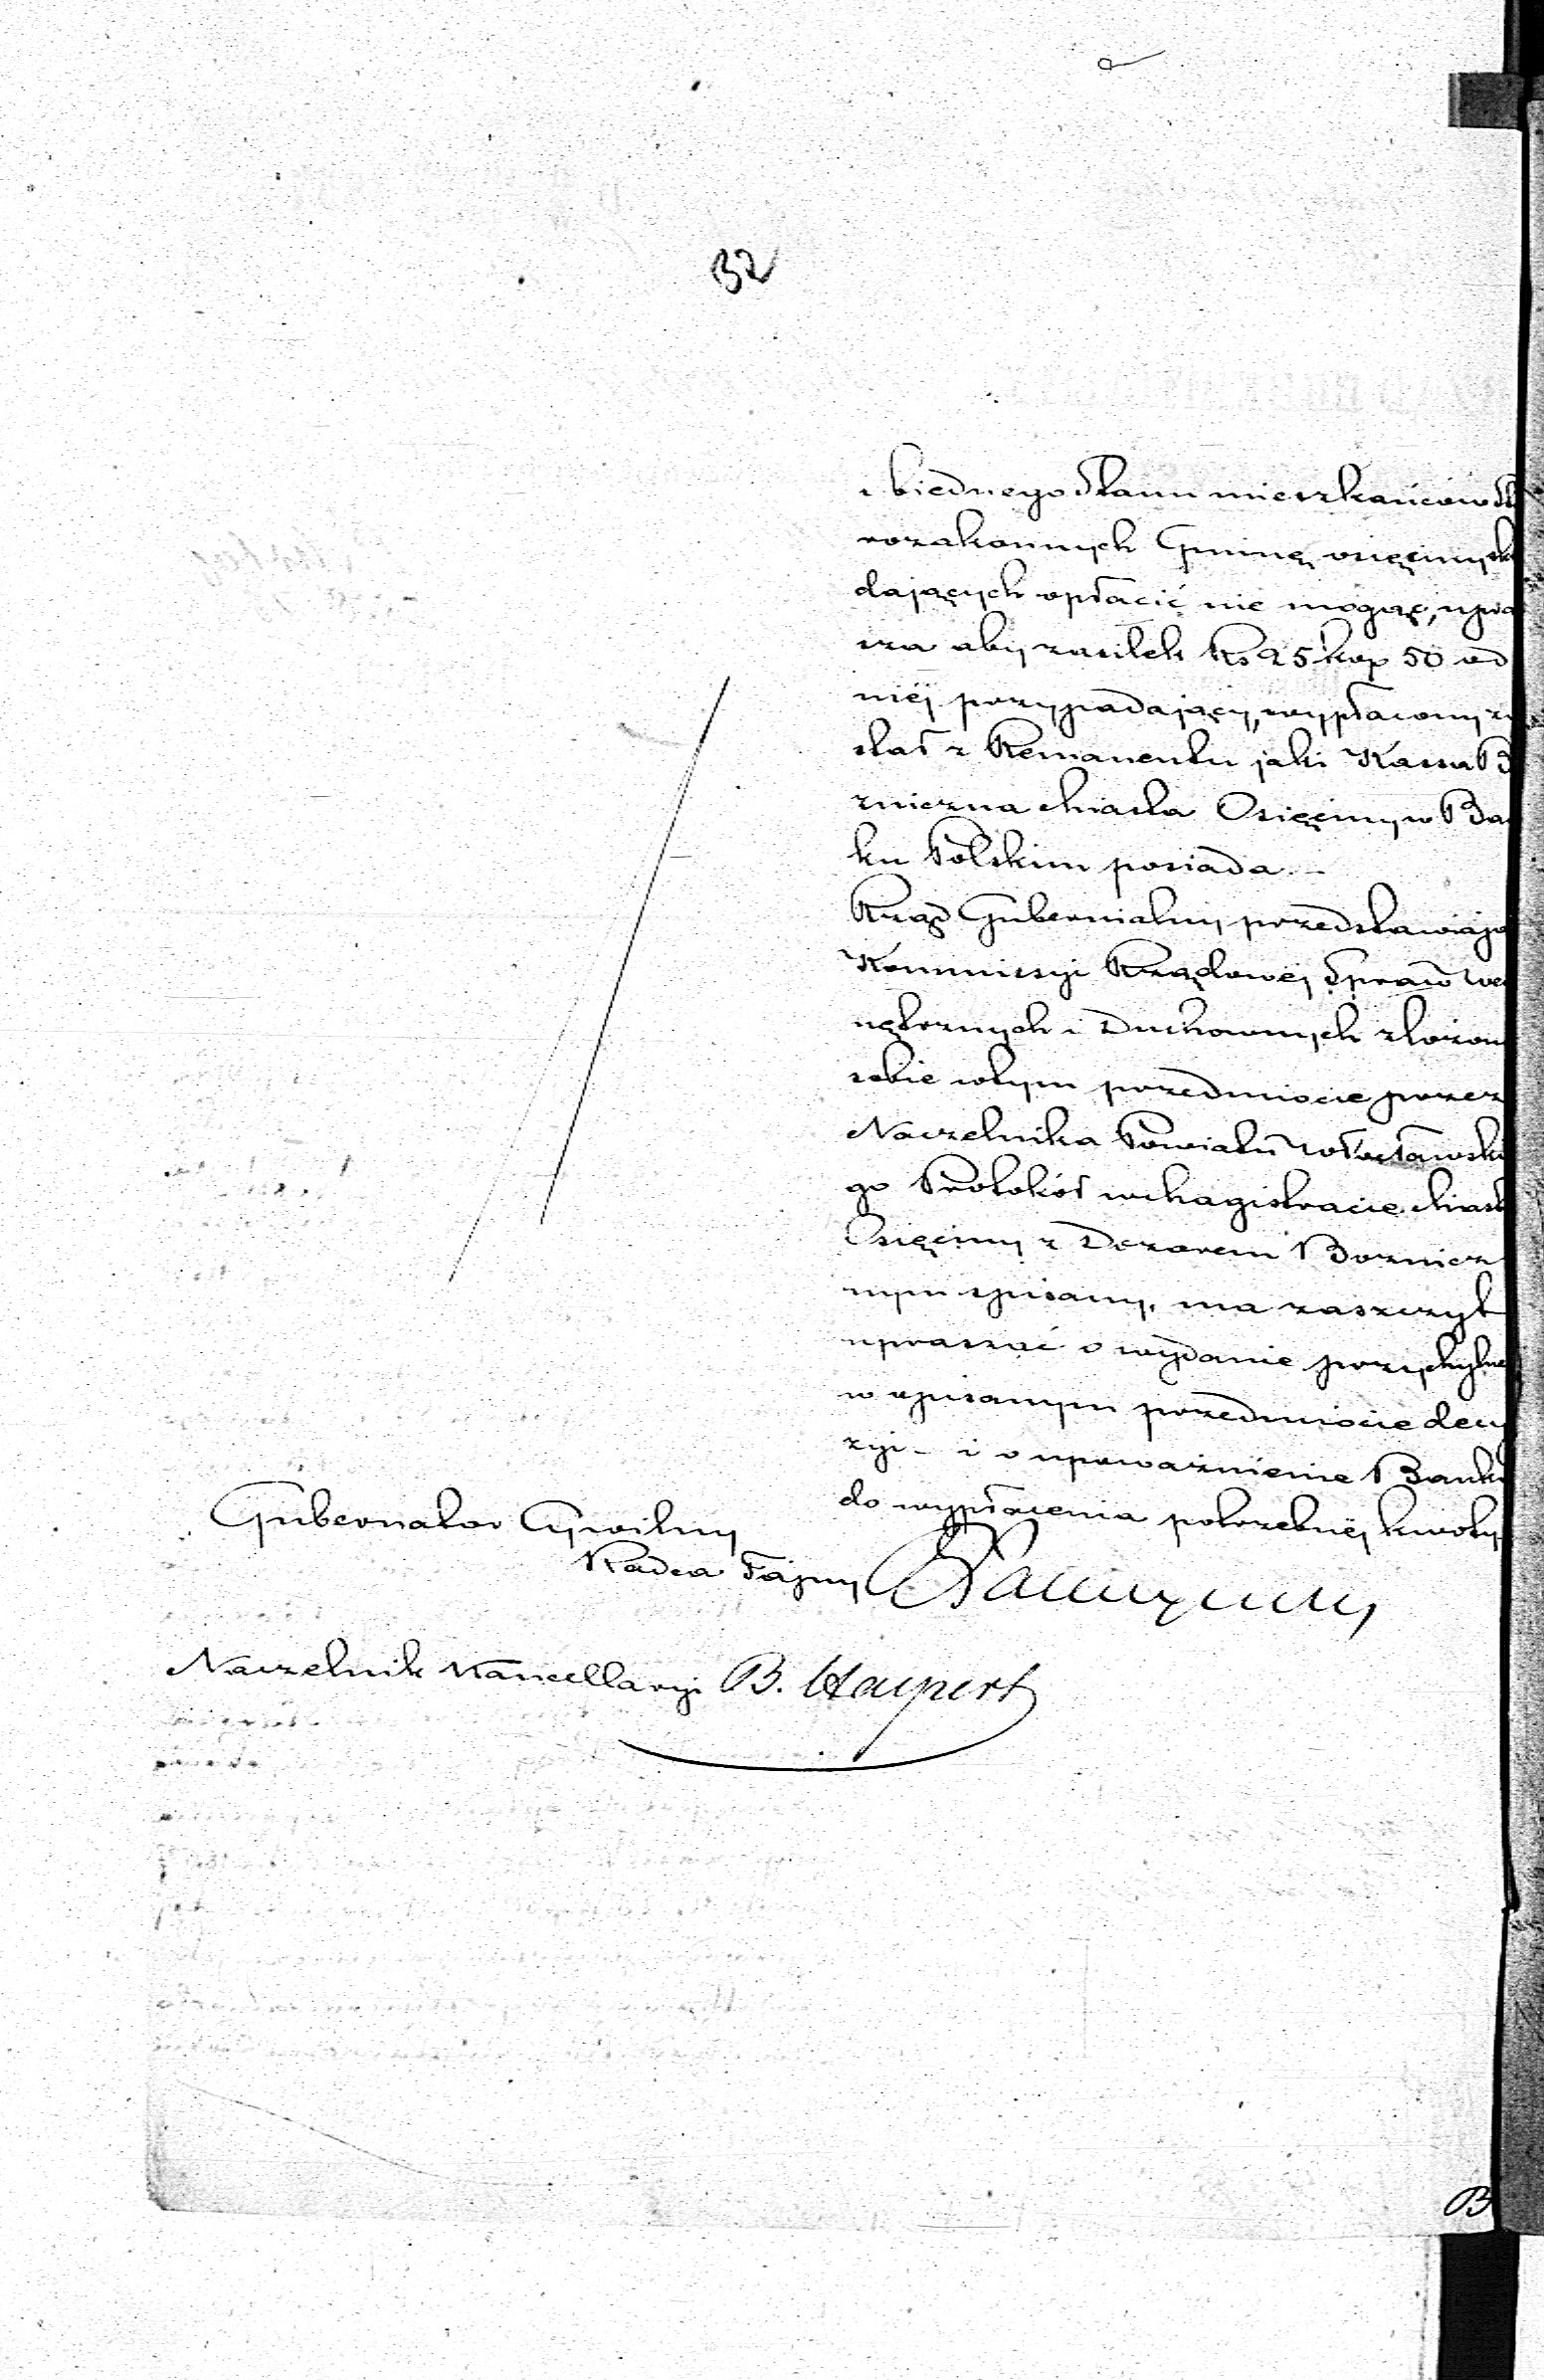 32
z biednego stanu mieszkańców St
rozakonnych Gminę osięcinysk
dających opłacić nie mogąc, upra
sza aby zasiłek Rs 25 kop 50 od
niéj przypadający, wypłacony zo
stał z Remanentu jaki Kassa B
zniczna Miasta Osięciny w Ba
ku Polskim posiada. –
Rząd Gubernialny przedstawiają
Kommissyi Rządowéj Spraw We
nętrznych i Duchownych złożon
sobie w tym przedmiocie przez
Naczelnika Powiatu Włocławski
go Protokół w Magistracie Miast
Osięciny z Dozorem Boznicz
nym spisany, ma zaszczyt
upraszać o wydanie przychylne
w opisanym przedmiocie decy
zyi – i o upoważnienie Banku
do wypłacenia potrzebnéj kwoty.
Gubernator Cywilny
Radca Tajny
Naczelnik Kancellaryi B. Haupert
B